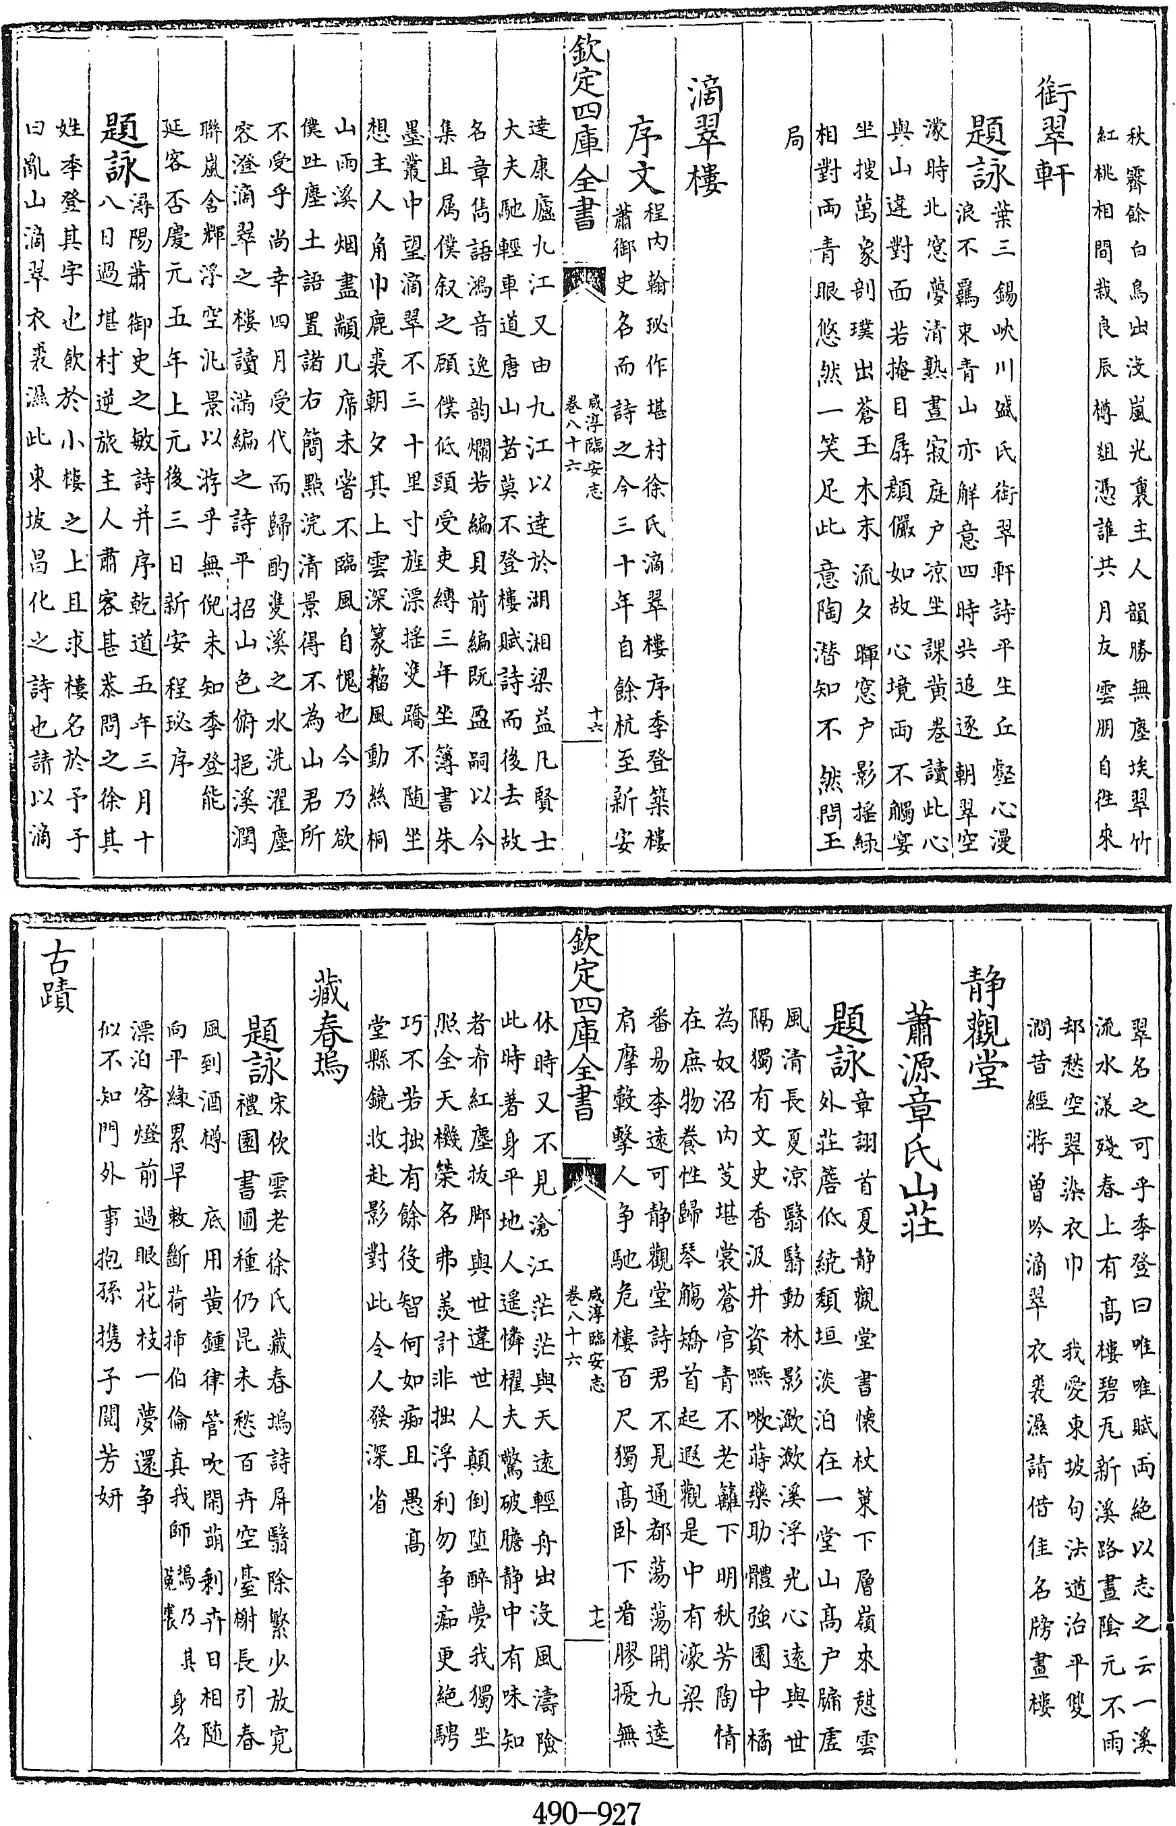 秋霽餘白鳥出沒嵐光裏主人韻勝無塵埃翠竹
紅桃相間栽良辰樽爼憑誰共月友雲朋自往來
銜翠軒
題詠
葉三錫峽川盛氏銜翠軒詩平生丘壑心漫
浪不羈束青山亦解意四時共追逐朝翠空
濛時北窓夢清熟晝寂庭户凉坐課黄巻讀此心
與山違對面若掩目孱顔儼如故心境兩不觸宴
坐搜萬象剖璞出蒼玉木末流夕暉窓户影搖緑
相對兩青眼悠然一笑足此意陶潛知不然問玉
局
滴翠樓
序文
程内翰珌作堪村徐氏滴翠樓序季登築樓
蕭御史名而詩之今三十年自餘杭至新安
欽定四庫全書
咸淳臨安志
卷八十六
十六
達康廬九江又由九江以達於湖湘梁益凡賢士
大夫馳輕車道唐山者莫不登樓賦詩而後去故
名章雋語鴻音逸韵爛若編貝前編既盈嗣以今
集且属僕叙之顧僕低頭受吏縛三年坐簿書朱
墨叢中望滴翠不三十里寸旌漂摇雙蹻不随坐
想主人角巾鹿裘朝夕其上雲深篆籀風動絲桐
山雨溪烟盡顓几席未嘗不臨風自愧也今乃欲
僕吐塵土語置諸右簡點浣清景得不為山君所
不受乎尚幸四月受代而歸酌雙溪之水洗濯塵
容澄滴翠之樓讀滿編之詩平招山色俯挹溪潤
聯嵐含輝浮空汎景以游乎無倪未知季登能
延客否慶元五年上元後三日新安程珌序
題詠
潯陽蕭御史之敏詩并序乾道五年三月十
八日過堪村逆旅主人肅客甚恭問之徐其
姓季登其字也飲於小樓之上且求樓名於予予
曰亂山滴翠衣裘濕此東坡昌化之詩也請以滴
翠名之可乎季登曰唯唯賦兩絶以志之云一溪
流水漾殘春上有高樓碧瓦新溪路晝陰元不雨
却愁空翠染衣巾　我愛東坡句法道治平雙
澗昔經游曾吟滴翠衣裘濕請借佳名牓畫樓
静觀堂
蕭源章氏山莊
題詠
章詡首夏静觀堂書懷杖策下層嶺來憇雲
外莊簷低繞頽垣淡泊在一堂山高户牖虚
風清長夏凉翳翳動林影瀲瀲溪浮光心遠與世
隔獨有文史香汲井資嚥嗽蒔藥助體強園中橘
為奴沼内芰堪裳蒼官青不老籬下明秋芳陶情
在庶物養性歸琴觴矯首起遐觀是中有濠梁
番易李遠可静觀堂詩君不見通都蕩蕩開九逵
肩摩轂擊人争馳危樓百尺獨高卧下看膠擾無
欽定四庫全書
咸淳臨安志
卷八十六
十七
休時又不見滄江茫茫與天遠輕舟出沒風濤險
此時著身平地人遥憐櫂夫驚破膽静中有味知
者希紅塵抜脚與世違世人顛倒墮醉夢我獨坐
照全天機榮名弗羨計非拙浮利勿争痴更絶騁
巧不若拙有餘役智何如痴且愚高
堂縣鏡收赴影對此令人發深省
藏春塢
題詠
宋伙雲老徐氏藏春塢詩屏翳除繁少放寛
禮園書圃種仍昆未愁百卉空臺榭長引春
風到酒樽　底用黄鍾律管吹閒萌剩卉日相随
向平緣累早敕斷荷揷伯倫真我師
塢乃其身名
漂泊客燈前過眼花枝一夢還争
似不知門外事抱孫携子閲芳妍
古蹟
490-927